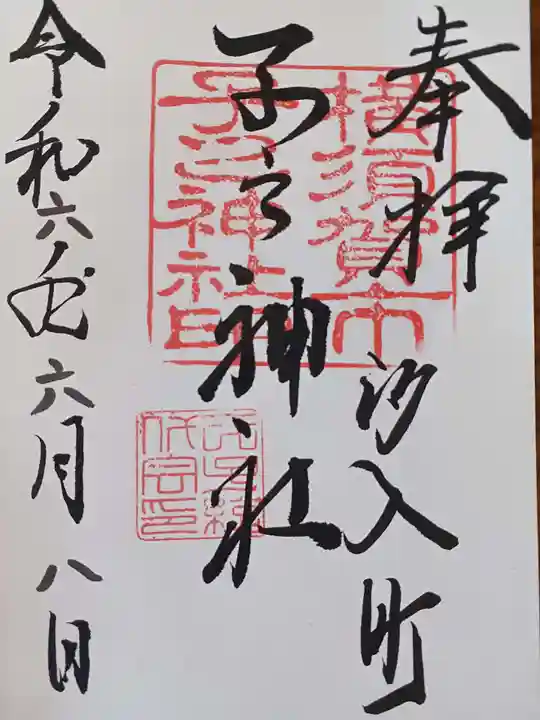 奉拝
汐入町
子之神社
令和六年六月八日
横須賀市
子之神社